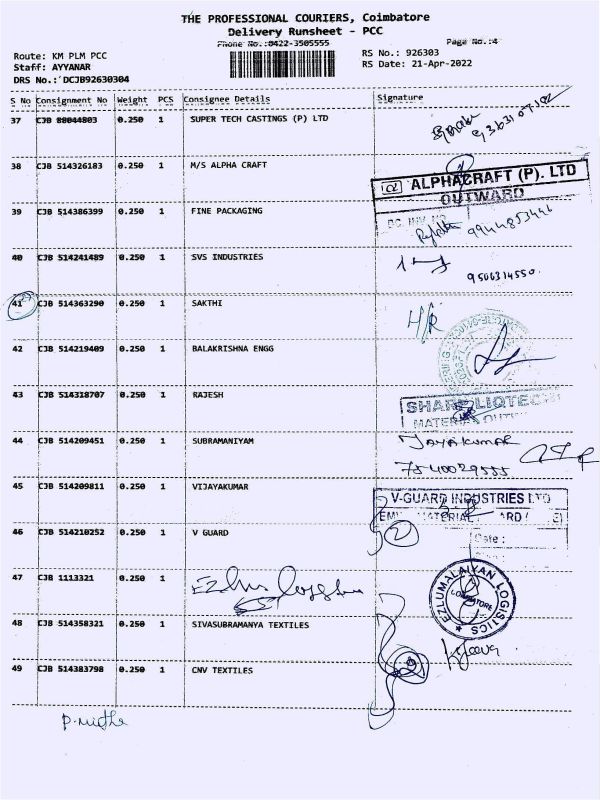 THE PROFESSIONAL COURIERS, Coimbatore
Delivery Runsheet - PCC
Phone No.:0422-3505555 Page No.:4
Route: KM PLM PCC RS No.: 926303
Staff: AYYANAR RS Date: 21-Apr-2022
DRS No.: DCJB92630304
S No Consignment No Weight PCS Consignee Details Signature
37 CJB 88044803 0.250 1 SUPER TECH CASTINGS (P) LTD
38 CJB 514326183 0.250 1 M/S ALPHA CRAFT
ALPHACRAFT (P). LTD
OUTWARD
39 CJB 514386399 0.250 1 FINE PACKAGING
9944853446
40 CJB 514241489 0.250 1 SVS INDUSTRIES
9566314550
41 CJB 514363290 0.250 1 SAKTHI
H/R
42 CJB 514219409 0.250 1 BALAKRISHNA ENGG
43 CJB 514318707 0.250 1 RAJESH
SHARP LIQTECH
44 CJB 514209451 0.250 1 SUBRAMANIYAM
Jayakumar
7540029555
45 CJB 514209811 0.250 1 VIJAYAKUMAR
V-GUARD INDUSTRIES LTD
46 CJB 514210252 0.250 1 V GUARD
Date :
47 CJB 1113321 0.250 1
EZLUMALAIYAN LOGISTICS
COIMBATORE
48 CJB 514358321 0.250 1 SIVASUBRAMANYA TEXTILES
49 CJB 514383798 0.250 1 CNV TEXTILES